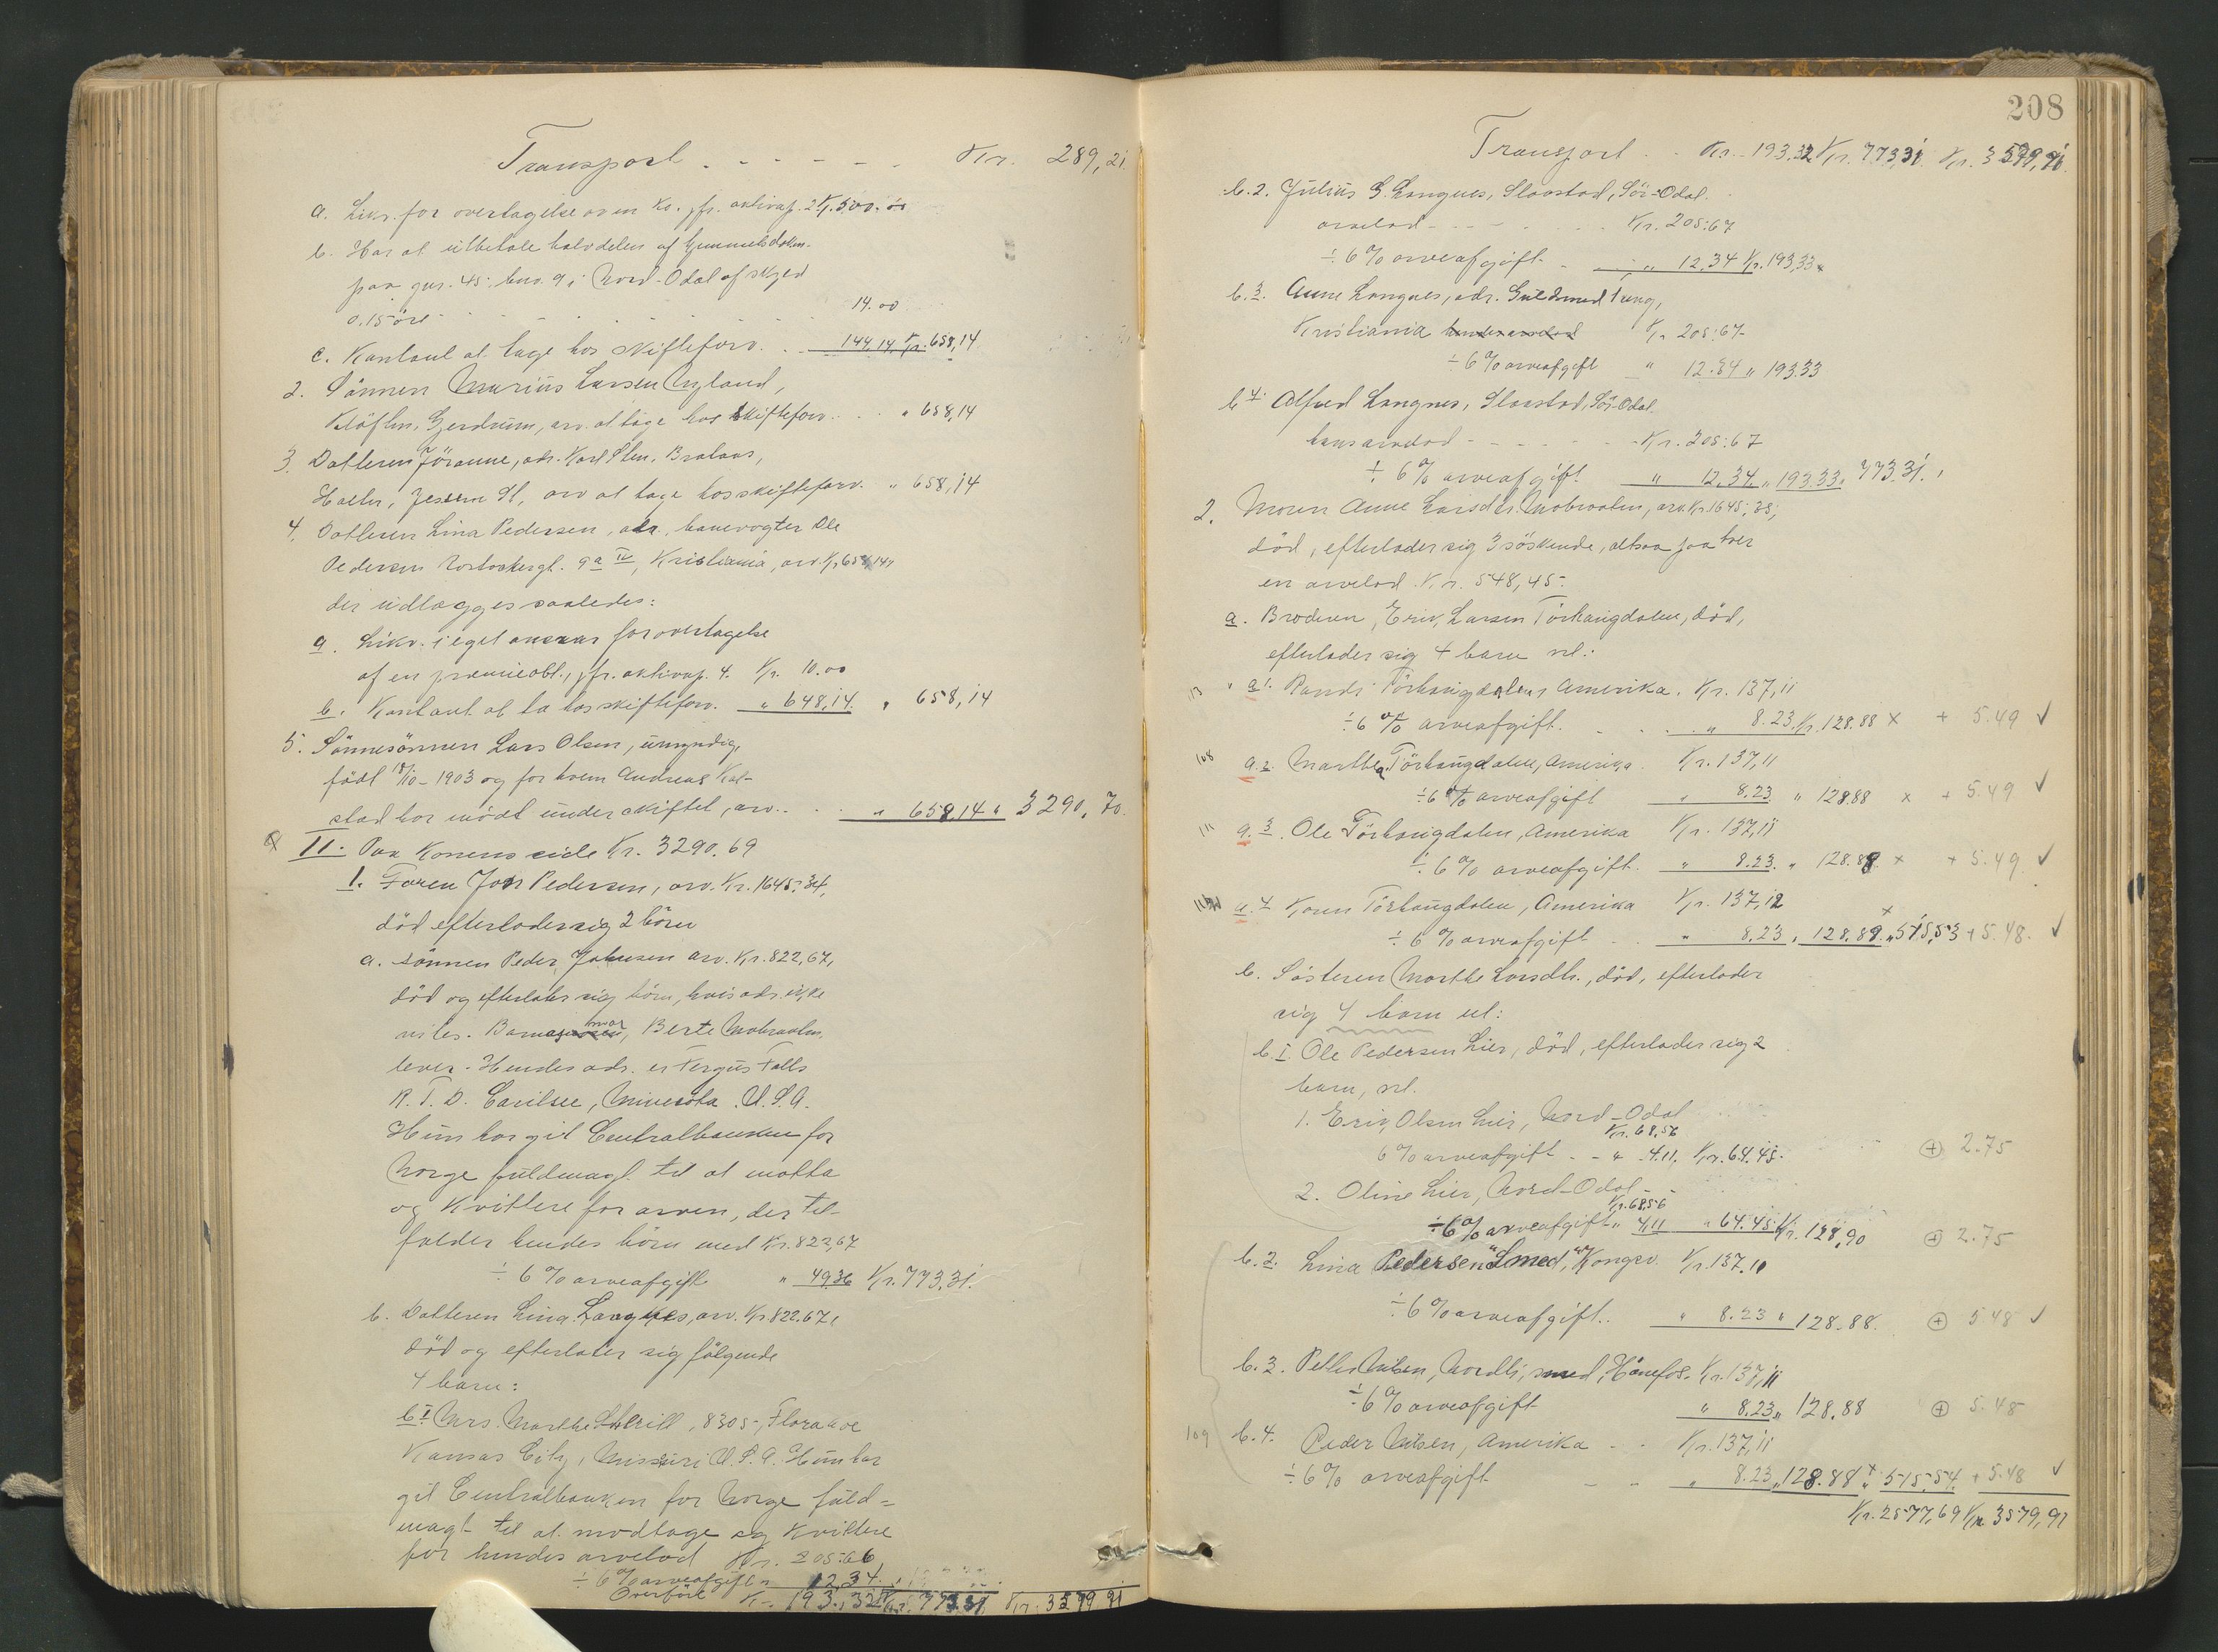 Transport - - - - - - Kr. 289,21
a. Likv. for overtagelse av en ko. jfr. aktivap. 2 Kr. 500.00
b. Har at utbetale halvdelen af
paa gnr. 45. bnr. 9 i Nord-Odal af skyld
0.15 öre - - - - - - 14.00
c. Kontant at tage hos skifteforv. . . 144.14 Kr. 658,14
2. Sönnen Marius Larsen Nyland,
Klöften, Gjerdrum, arv. at tage hos skifteforv. . . . " 658,14
3. Datteren Jöranne, adr. Karl Sten. Brataas,
Holter, Jessem St, arv at tage hos skifteforv. " 658,14
4. Datteren Lina Pedersen, adr. banevogter Ole
Pedersen 9a IV, Kristiania, arv. Kr. 658,14,
der udlægges saaledes:
a. Likv. i eget ansvar for overtagelse
af en præmieobl., jfr. aktivap. 4. Kr. 10.00
b. Kontant at ta hos skifteforv. " 648,14. " 658,14
5. Sönnesönnen Lars Olsen, umyndig,
födt 18/10-1903 og for hvem Andreas Kol-
stad har mödt under skiftet, arv. . . . " 658,14 " 3290.70.
II. Paa Konens side Kr. 3290.69
1. Faren Jon Pedersen, arv. Kr. 1645.34,
död efterlader sig 2 börn
a. Sönnen Peder Johnsen arv. Kr. 822,67,
död og efterlater sig börn, hvis adr. ikke
vites. Barnas mor, Berte Mobraaten
lever. Hendes adr. er Fergus Falls
R. F. D. Carilsee, Minesota. U.S.A.
Hun har git Centralbanken for
Norge fuldmagt til at motta
og kvittere for arven, der til-
falder hendes börn med Kr. 822,67
÷ 6 % arveafgift " 49.36 Kr. 773.31.
b. Datteren Lina Langnes, arv. Kr. 822.67,
död og efterlater sig fölgende
4 barn:
b.1 Mrs. Marthe Sherill, 8305, Flora ave
Kansas City, Missuri U.S.A. Hun har
git Centralbanken for Norge fuld-
magt til at modtage og kvittere
for hendes arvelod Kr. 205.66
÷ 6 % arveafgift " 12,34
Overført Kr. 193,32 Kr. 773.31 Kr. 3579,91
208
Transport . . Kr. 193.32 Kr. 773.31 Kr. 3579,91
b.2. Julius G. Langnes, Slaastad, Sör-Odal.
arvelod - - . . . . . Kr. 205.67
÷ 6 % arveafgift - " 12.34 Kr. 193.33
b.3. Anne Langnes, adr. Guldsmed Tveng,
Kristiania hendes arvelod Kr. 205.67
÷ 6 % arveafgift " 12.34 " 193.33
b.4. Alfred Langnes, Slaastad, Sör-Odal.
hans arvelod - - - - - - Kr. 205.67
÷ 6 % arveafgift " 12.34. " 193.33 " 773.31.
2. Moren Anne Larsdtr. Mobraaten, arv. Kr. 1645,35,
död, efterlader sig 3 söskende, altsaa paa hver
en arvelod Kr. 548,45.
a. Broderen, Erik Larsen Törhaugdalen, död,
efterlader sig 4 barn nl.:
a1. Randi Törhaugdalen, Amerika. Kr. 137,11
÷ 6 % arveafgift. . . . " 8.23. Kr. 128.88 x + 5.49 ✓
108 a.2. Marthea Törhaugdalen, Amerika. Kr. 137,11
÷ 6 % arveafgift " 8.23 " 128.88 x + 5.49 ✓
111 a.3. Ole Törhaugdalen, Amerika Kr. 137,11
÷ 6 % arveafgift. " 8.23. " 128.88 x + 5.49 ✓
a.4 Karen Törhaugdalen, Amerika Kr. 137,12
÷ 6 % arveafgift . . " 8.23, 128.89. x " 515,53 + 5.48. ✓
b. Sösteren Marthe Larsdtr., död, efterlader
sig 4 barn nl:
b.1 Ole Pedersen Lier, död, efterlader sig 2
barn, nl.
1. Erik Olsen Lier, Nord-Odal
Kr. 68,56
6 % arveafgift - - " 4.11. Kr. 64.45. + 2.75
2. Oline Lier, Nord-Odal
Kr. 68,56
÷ 6 % arveafgift " 4,11 " 64.45. Kr. 128,90 + 2.75
b.2. Lina Pedersen "Smed", Kongsv. Kr. 137.11
÷ 6 % arveafgift. . " 8.23 " 128.88. + 5.48 ✓
b.3. Petter Nilsen, Nordli, smed, Hönefos. Kr. 137,11
÷ 6 % arveafgift " 8.23 " 128.88 + 5.48
109 b.4. Peder Nilsen, Amerika - - Kr. 137,11
÷ 6 % arveafgift - - " 8.23 " 128.88 x " 515.54. + 5.48 ✓
Kr. 2577,69 Kr. 3579,91